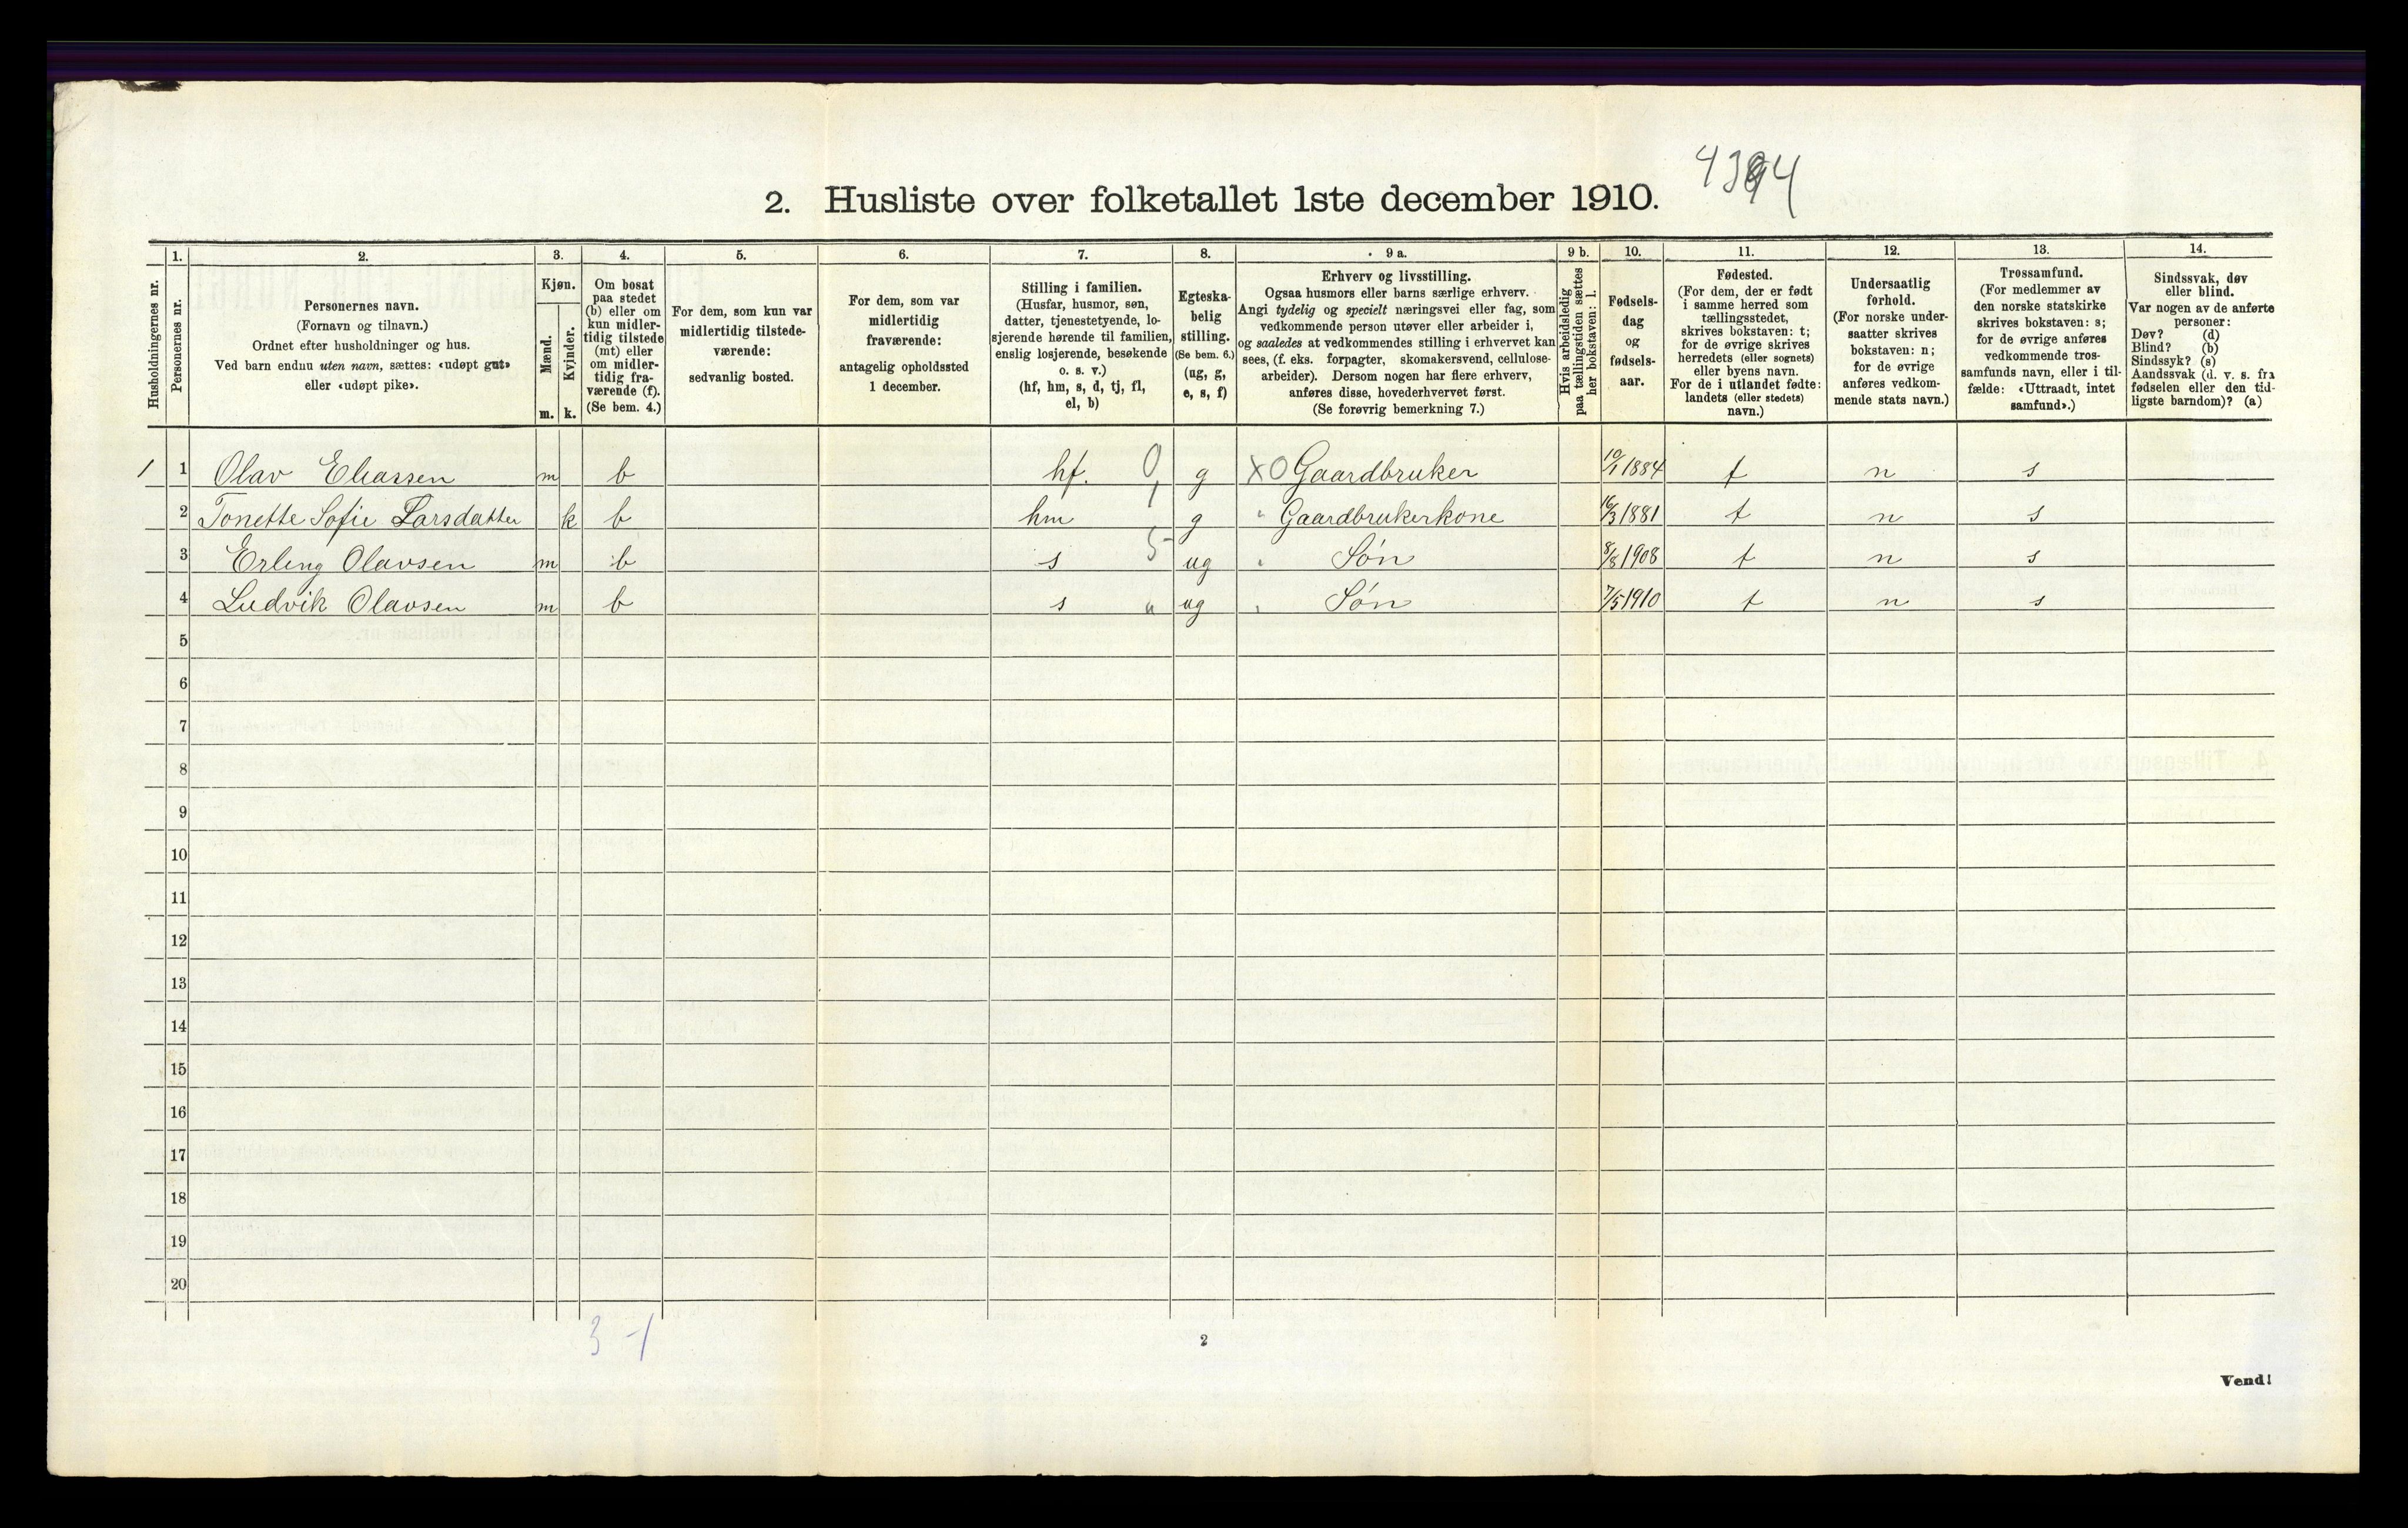 4394
2. Husliste over folketallet 1ste december 1910.
Husholdningernes nr.
1.
Personernes nr.
2.
Personernes navn.
(Fornavn og tilnavn.)
Ordnet efter husholdninger og hus.
Ved barn endnu uten navn, sættes: «udøpt gut»
eller «udøpt pike».
3.
Kjøn.
Mænd.
m.
Kvinder.
k.
4.
Om bosat
paa stedet
(b) eller om
kun midler-
tidig tilstede
(mt) eller
om midler-
tidig fra-
værende (f).
(Se bem. 4.)
5.
For dem, som kun var
midlertidig tilstede-
værende:
sedvanlig bosted.
6.
For dem, som var
midlertidig
fraværende:
antagelig opholdssted
1 december.
7.
Stilling i familien.
(Husfar, husmor, søn,
datter, tjenestetyende, lo-
sjerende hørende til familien,
enslig losjerende, besøkende
o. s. v.)
(hf, hm, s, d, tj, fl,
el, b)
8.
Egteska-
belig
stilling.
(Se bem. 6.)
(ug, g,
e, s, f)
9 a.
Erhverv og livsstilling.
Ogsaa husmors eller barns særlige erhverv.
Angi tydelig og specielt næringsvei eller fag, som
vedkommende person utøver eller arbeider i,
og saaledes at vedkommendes stilling i erhvervet kan
sees, (f. eks. forpagter, skomakersvend, cellulose-
arbeider). Dersom nogen har flere erhverv,
anføres disse, hovederhvervet først.
(Se forøvrig bemerkning 7.)
9 b.
Hvis arbeidsledig
paa tællingstiden sættes
her bokstaven: l.
10.
Fødsels-
dag
og
fødsels-
aar.
11.
Fødested.
(For dem, der er født
i samme herred som
tællingsstedet,
skrives bokstaven: t;
for de øvrige skrives
herredets (eller sognets)
eller byens navn.
For de i utlandet fødte:
landets (eller stedets)
navn.)
12.
Undersaatlig
forhold.
(For norske under-
saatter skrives
bokstaven: n;
for de øvrige
anføres vedkom-
mende stats navn.)
13.
Trossamfund.
(For medlemmer av
den norske statskirke
skrives bokstaven: s;
for de øvrige anføres
vedkommende tros-
samfunds navn, eller i til-
fælde: «Uttraadt, intet
samfund».)
14.
Sindssvak, døv
eller blind.
Var nogen av de anførte
personer:
Døv? (d)
Blind? (b)
Sindssyk? (s)
Aandssvak (d. v. s. fra
fødselen eller den tid-
ligste barndom)? (a)
1 1 Olav Eliassen m b hf. 0 g XO Gaardbruker 10/1 1884 t n s
2 Tonette Sofie Larsdatter k b hm 1 g " Gaardbrukerkone 16/3 1881 t n s
3 Erling Olavsen m b s 5 ug " Søn 8/8 1908 t n s
4 Ludvik Olavsen m b s " ug " Søn 7/5 1910 t n s
5
6
7
8
9
10
11
12
13
14
15
16
17
18
19
20
3 - 1
2
Vend!